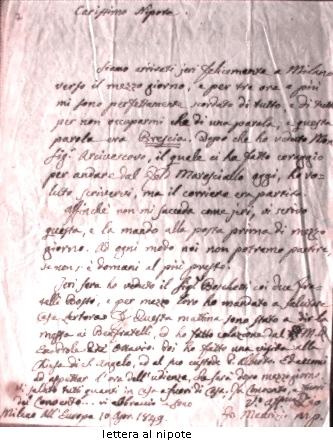 Carissimo Nipote.
Siamo arrivati jeri felicemente a Milano
verso il mezzo giorno, e per tre ora e più
mi sono perfettamente scordato di tutto, e di tutti
per non occuparmi che di una parola, e questa
parola era Brescia. Dopo che ho veduto
Sigr Arcivescovo, il quale ci ha fatto coraggio
per andare dal Maresciallo oggi, ho vo-
luto scrivervi, ma il corriere era partito.
Affinché non mi succeda come jeri, vi scrivo
questa, e la mando alla posta prima di mezzo
giorno. Ad ogni modo noi non potremo partire
se non è domani al più presto.
Jeri sera ho veduto il Sigr Boschetti coi due fra-
telli Dosto, e per mezzo loro ho mandato a salutare
Casa Questa mattina sono stato a dir la
messa ai Benfratelli, ed ho fatto colazione dal
Ottavio: poi ho fatto una visita alla
Chiesa di S. Angelo, ed al
ad appuntar l'ora dell'udienza, che sarà dopo mezzogiorno
vi saluto tutti quanti in casa e fuori di casa,
del Convento. vi abbraccio
Milano All'Europa 10 Ago 1849. Maurizio
lettera al nipote